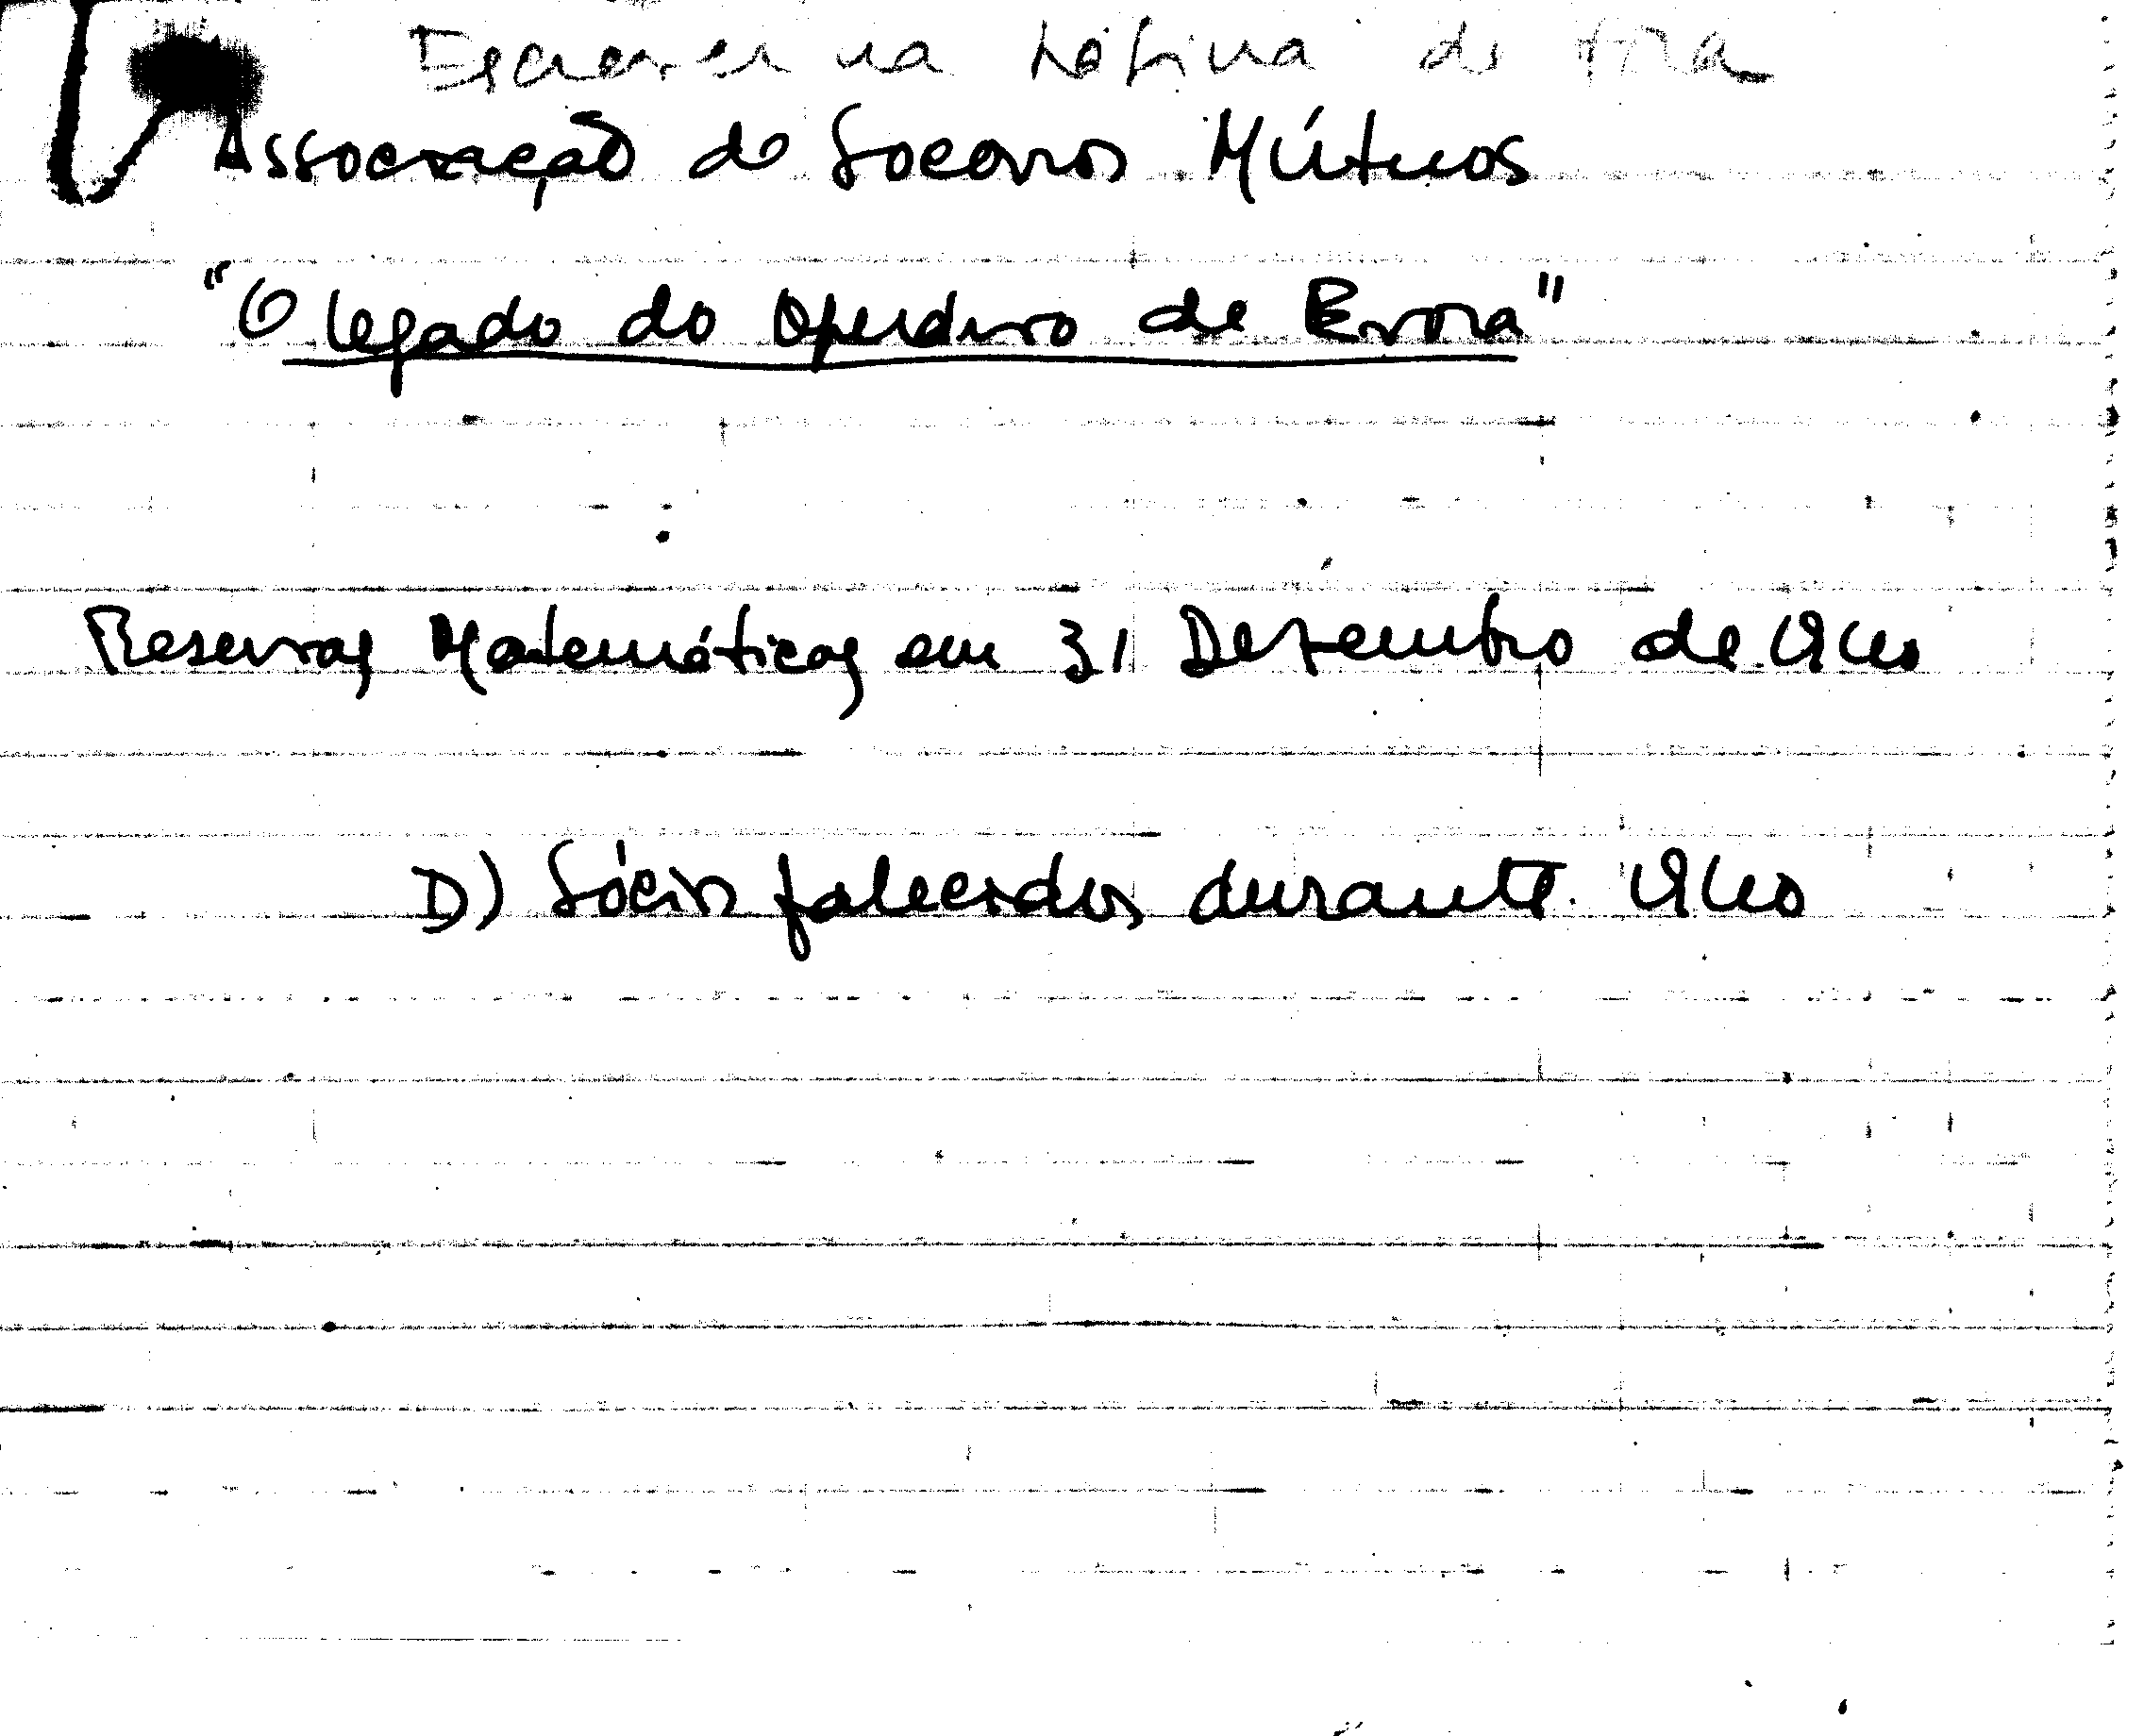 Escrever na página de fora
Associação de Socorros Mútuos
"O legado do Operário de Evora"
Reservas Matemáticas em 31 Dezembro de
D) Sócios falecidos durante